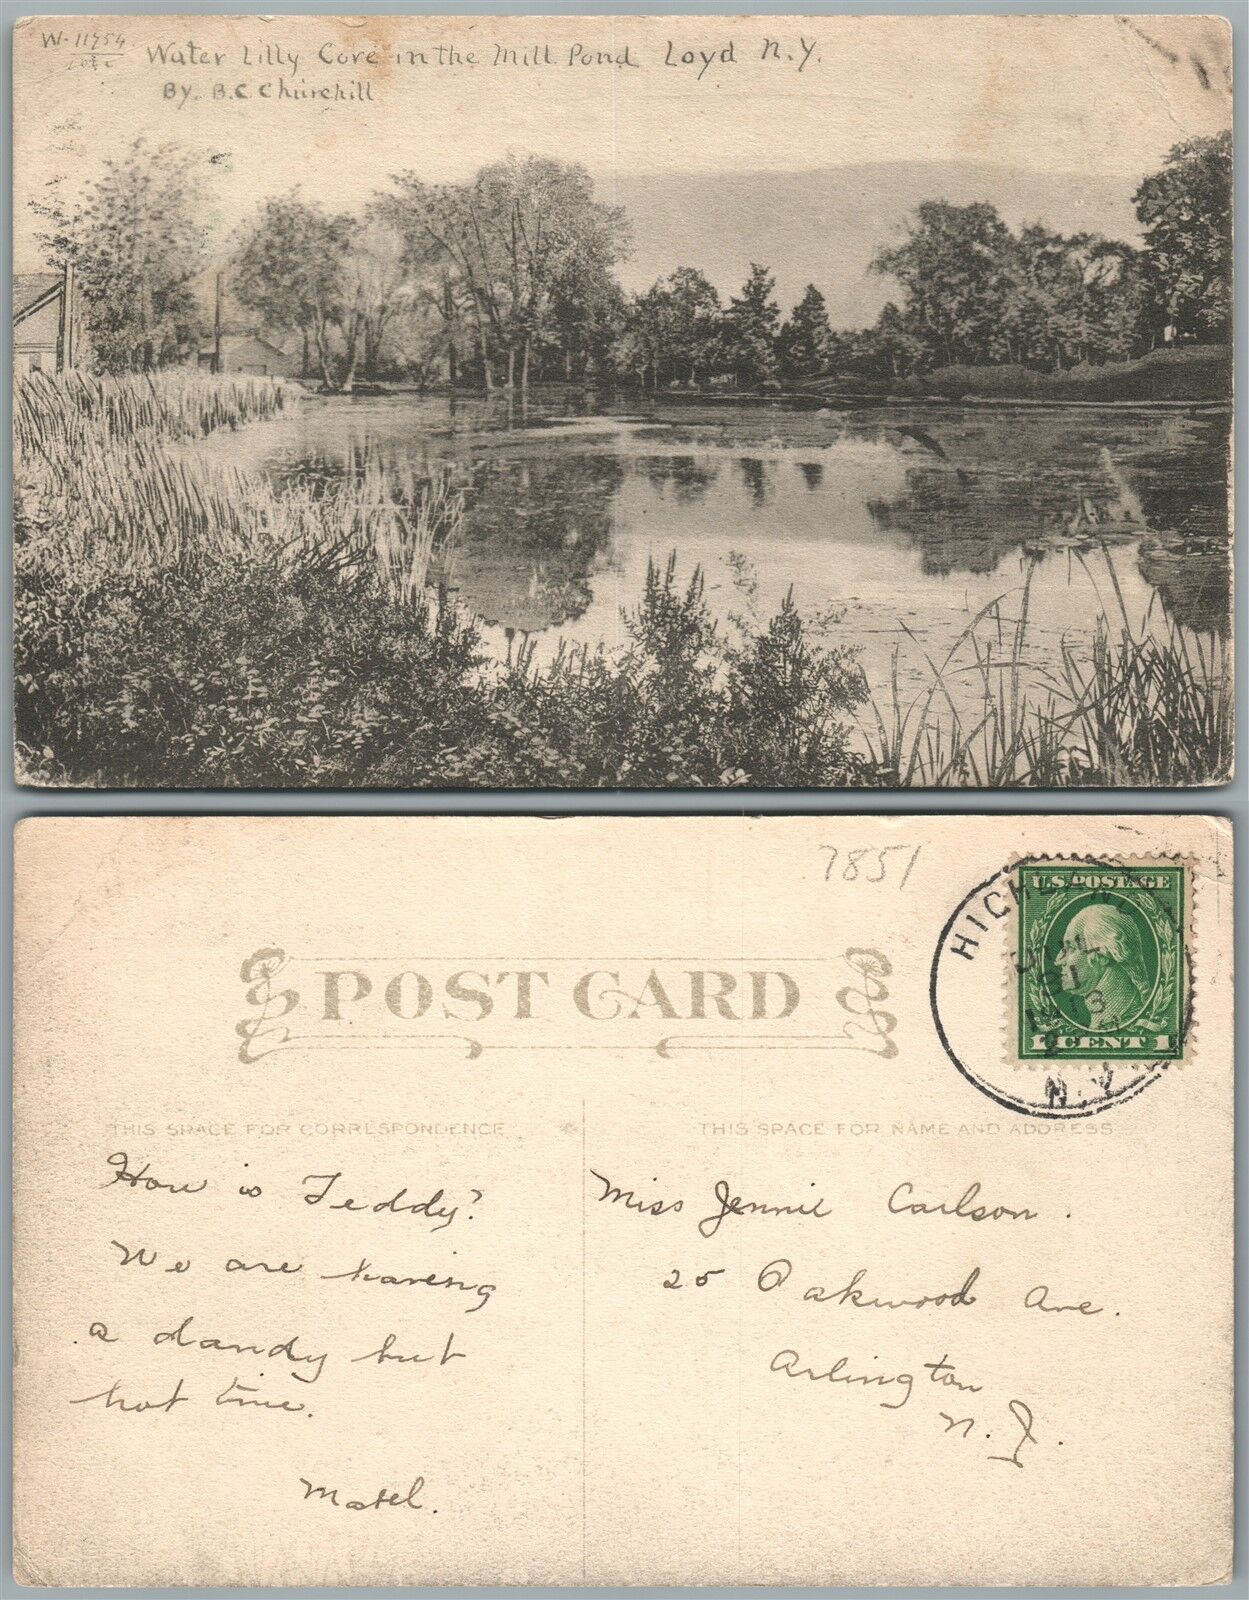 W-11754
Water Lilly Cove in the Mill Pond Loyd N.Y.
By. B.C. Churchill
7851
HIGHLAND
JUL
31
1913
N.Y.
U.S. POSTAGE
1 CENT 1
POST CARD
THIS SPACE FOR CORRESPONDENCE
THIS SPACE FOR NAME AND ADDRESS
How is Teddy?
We are having
a dandy but
hot time.
Mabel.
Miss Jennie Carlson.
25 Oakwood Ave.
Arlington
N.J.